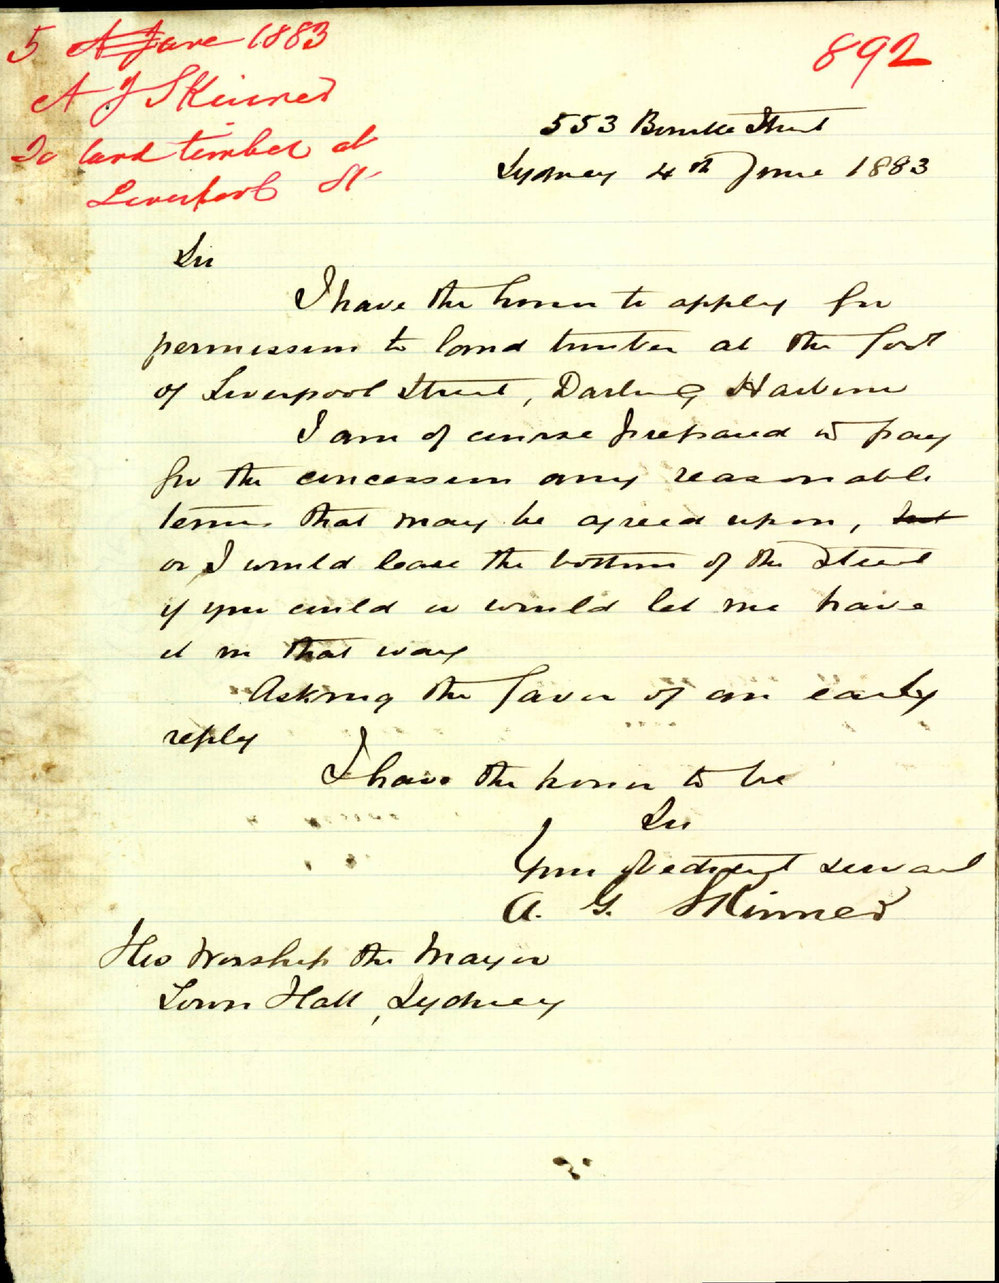 5 June 1883
A J Skinner
To land timber at
Liverpool St
892
553 Bourke Street
Sydney 4th June 1883
Sir
I have the honor to apply for
permission to land timber at the foot
of Liverpool Street, Darling Harbour
I am of course prepared to pay
for the concession any reasonable
terms that may be agreed upon, but
or I would lease the bottom of the street
if you could or would let me have
it in that way
Asking the favor of an early
reply
I have the honor to be
Sir
Your obedient servant
A. G. Skinner
His Worship the Mayor
Town Hall, Sydney